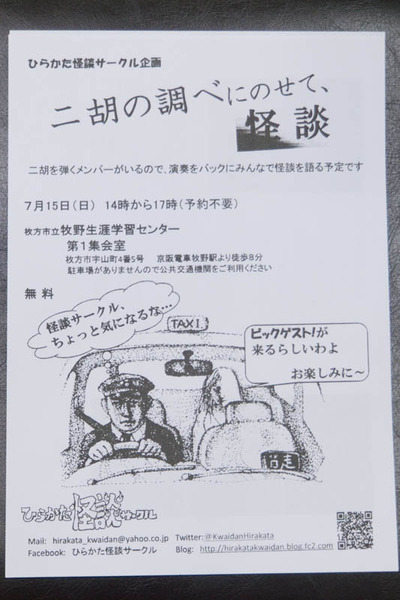 ひらかた怪談サークル企画
二胡の調べにのせて、
怪談
二胡を弾くメンバーがいるので、演奏をバックにみんなで怪談を語る予定です
7月15日（日） 14時から17時（予約不要）
枚方市立牧野生涯学習センター
第1集会室
枚方市宇山町4番5号 京阪電車牧野駅より徒歩8分
駐車場がありませんので公共交通機関をご利用ください
無料
怪談サークル、
ちょっと気になるな…
TAXI
ビックゲスト!が
来るらしいわよ
お楽しみに～
ひらかた怪談サークル
Mail: hirakata_kwaidan@yahoo.co.jp Twitter:@KwaidanHirakata
Facebook: ひらかた怪談サークル Blog: http://hirakatakwaidan.blog.fc2.com